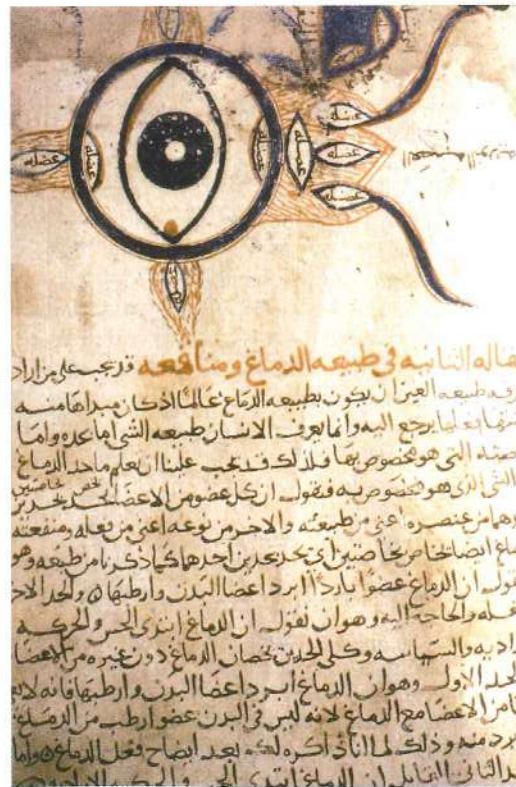 عضله
عضله
عضله
عضله
عضله
عضله
عضله
العصبه النوريه
قاله الثانيه في طبيعه الدماغ ومنافعه قد يجب على من اراد
رفه طبيعه العين ان يكون بطبيعه الدماغ عالماً اذ كان مبداها منه
فعلها يرجع اليه وانما يعرف الانسان طبيعه الشي اما بحده واما
صته التي هو مخصوص بها فلذلك قد يجب علينا ان نعلم ما حد الدماغ
الشي الذي هو مخصوص به فنقول ان كل عضو من الاعضا يحد
من عنصره اعني من طبيعته والاخر من نوعه اعني من فعله ومنفعته
ماغ ايضا يخاص بخاصتين اي يحد بحدين احدها كما ذكرنا من طبعه وهو
نقول ان الدماغ عضوا بارداً ابرد اعضا البدن وارطبها والحد الاخ
فعله والحاجه اليه وهو ان نقول ان الدماغ ابتدى الحس والحركه
راديه والسياسه وكلى الحدين يخصان الدماغ دون غيره من الاعضا
لحد الاول وهو ان الدماغ ابرد اعضا البدن وارطبها فانه لا يعم
من الاعضا مع الدماغ لانه ليس في البدن عضو ارطب من الدماغ
ابرد منه وذلك لما انا ذاكره لكم بعد ايضاح فعل الدماغ واما
لحد الثاني القايل ان الدماغ ابتدى الحس والحركه الاراديه